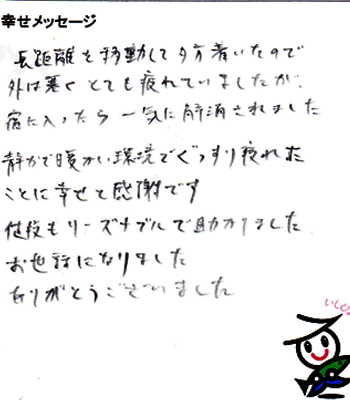 幸せメッセージ
長距離を移動して夕方着いたので
外は寒く とても疲れていましたが、
宿に入ったら 一気に解消されました
静かで暖かい環境でぐっすり寝れた
ことに幸せと感謝です
値段もリーズナブルで助かりました
お世話になりました
ありがとうございました